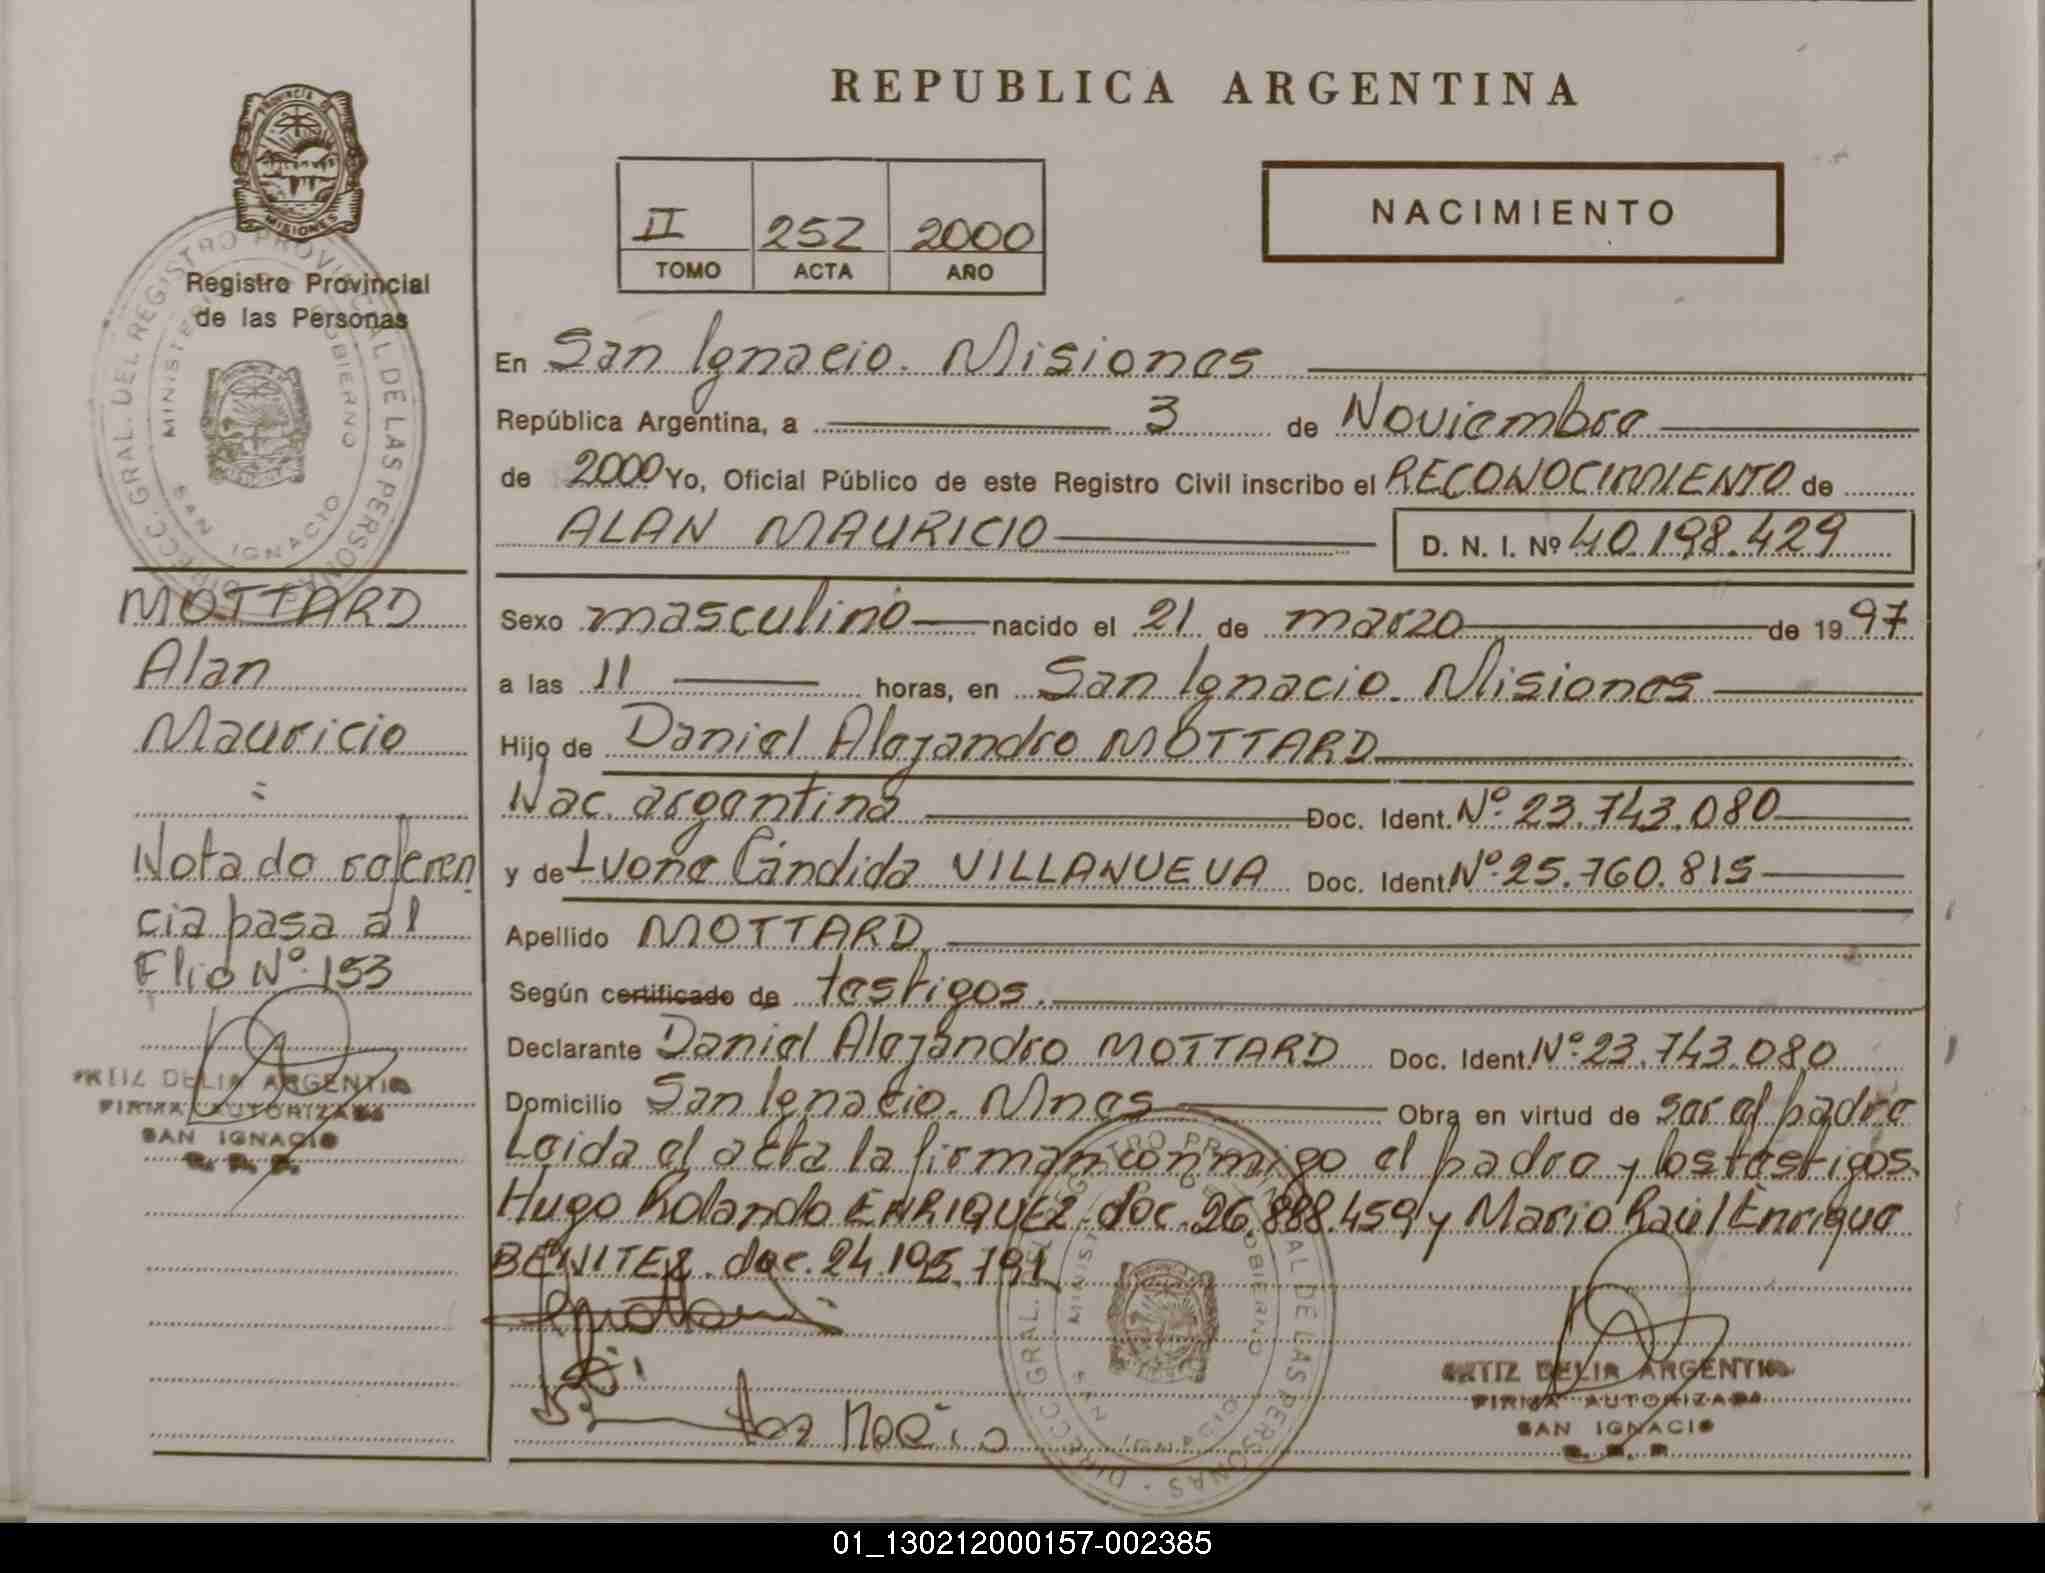 REPUBLICA ARGENTINA
PROVINCIA DE
MISIONES
Registro Provincial
de las Personas
DIRECC. GRAL. DEL REGISTRO PROVINCIAL DE LAS PERSONAS
MINISTERIO GOBIERNO
SAN IGNACIO
II 252 2000
TOMO ACTA AÑO
NACIMIENTO
En San Ignacio. Misiones
República Argentina, a 3 de Noviembre
de 2000 Yo, Oficial Público de este Registro Civil inscribo el RECONOCIMIENTO de
ALAN MAURICIO D. N. I. Nº 40.198.429
Sexo masculino nacido el 21 de marzo de 1997
a las 11 horas, en San Ignacio. Misiones
Hijo de Daniel Alejandro MOTTARD
Nac. argentina Doc. Ident. Nº 23.743.080
y de Ivone Cándida VILLANUEVA Doc. Ident. Nº 25.760.815
Apellido MOTTARD
Según certificado de testigos.
Declarante Daniel Alejandro MOTTARD Doc. Ident. Nº 23.743.080
Domicilio San Ignacio. Mnes Obra en virtud de ser el padre
Leida el acta la firman conmigo el padre y los testigos.
Hugo Rolando ENRIQUEZ. doc. 26.888.459 y Mario Raúl Enrique
BENITEZ. doc. 24.195.791
MOTTARD
Alan
Mauricio
=
Nota de referen
cia pasa al
Flio Nº 153
ORTIZ DELIA ARGENTINA
FIRMA AUTORIZADA
SAN IGNACIO
R. P. P.
DIRECC. GRAL. DEL REGISTRO PROVINCIAL DE LAS PERSONAS
MINISTERIO GOBIERNO
SAN IGNACIO
ORTIZ DELIA ARGENTINA
FIRMA AUTORIZADA
SAN IGNACIO
01_130212000157-002385